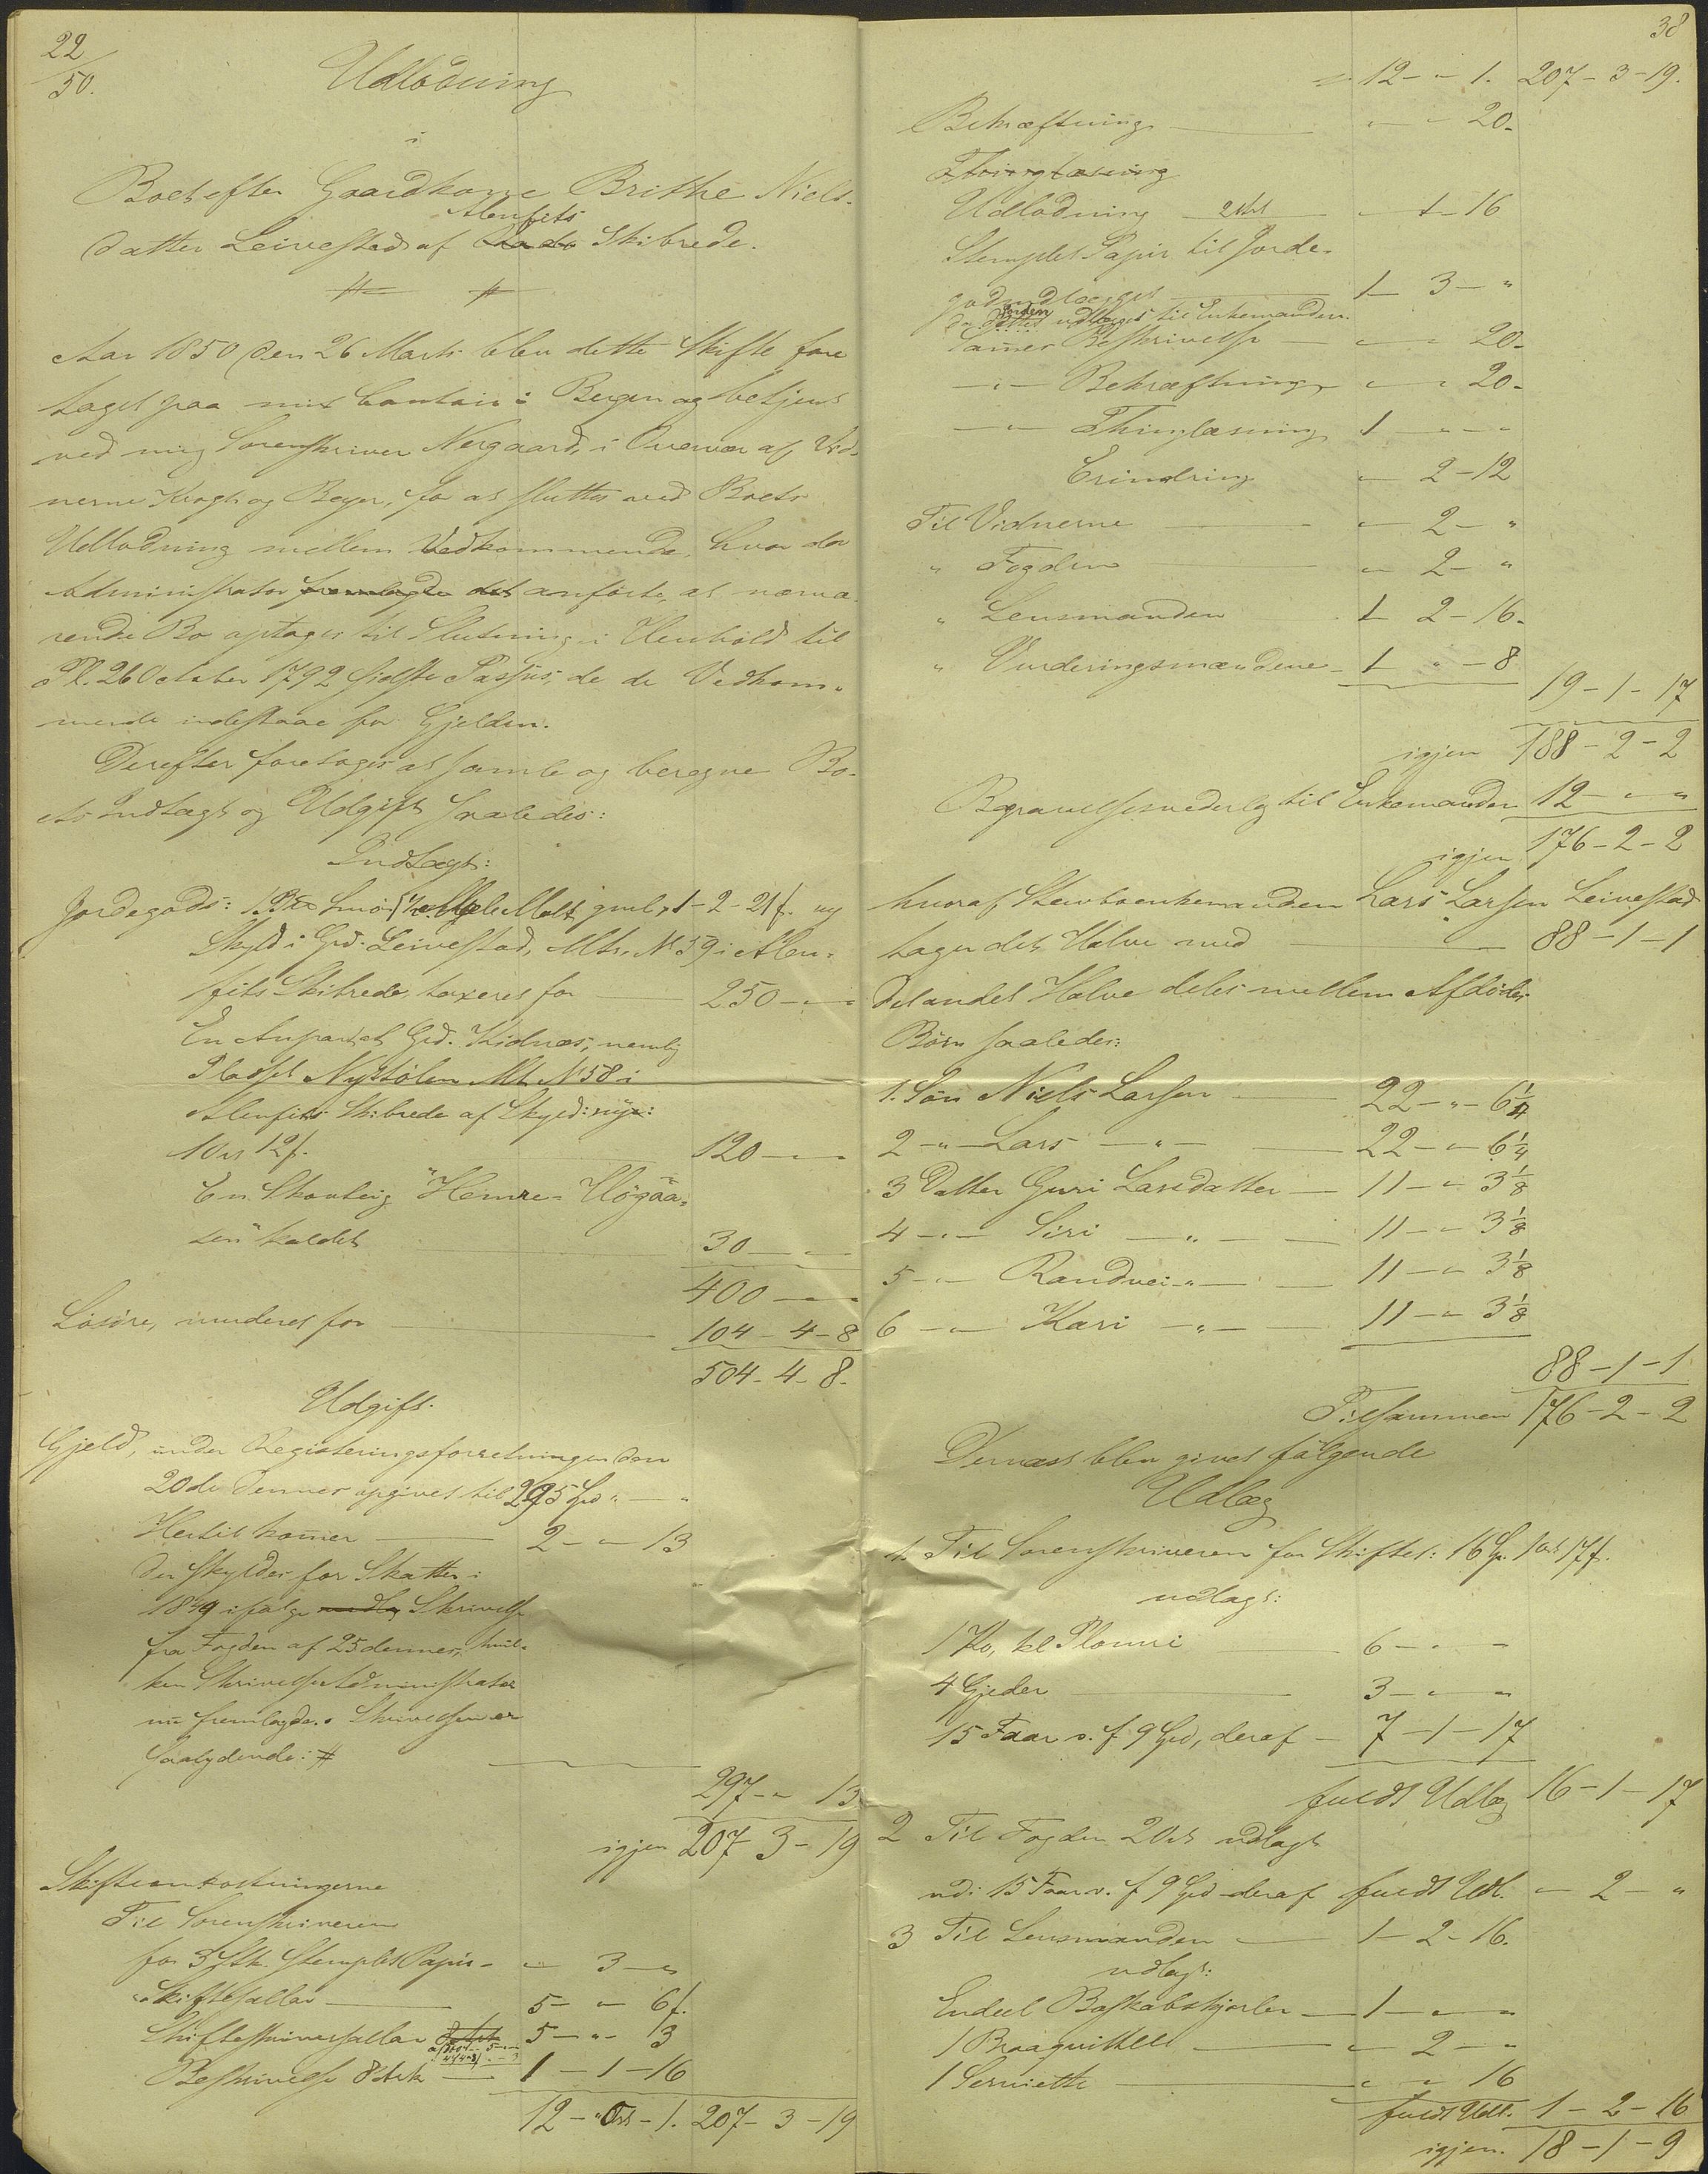 22
50.
Udlodning
i
Boet efter Gaardkone Brithe Niels-
Alenfits
datter Leivestad af Skibrede.
Aar 1850 den 26 Marts blev dette Skifte fore
taget paa mit Contoir i Bergen og betjent
ved mig Sorenskriver Nergaard, i Overvær af Vid-
nerne Krogh og Beyer, for at sluttes med Boets
Udlodning mellem Vedkommende, hvor da
Administrator fremlagde det anførte, at nærvæ-
rende Bo optages til Slutning i Henhold til
Pl. 26 October 1792 sidste Passus, da de Vedkom-
mende indestaae for Gjelden.
Derefter foretages at samle og beregne Bo-
ets Indtægt og Udgift saaledes:
Indtægt:
Jordegods: Smør Malt, gml, 1-2-21 f. ny
Skyld i Grd. Leivestad, Mtr. No 59 i Alen-
fits Skibrede taxeret for 250 - " - "
En Anpart i Grd. Kidnæs, nemlig
Pladset Nystølen Mt. No 58 i
Alenfits Skibrede af Skyld: nye:
1 Ort 12 f. 120 - " - "
En Skovteig "Hemre-Høgaa-
sen" kaldet 30 - " - "
400 - " - "
Løsøre, vurderet for 104 - 4 - 8
504 - 4 - 8.
Udgift.
Gjeld, under Registeringsforretningen den
20de Dennes opgivet til 295 Spd " - "
Hertil kommer 2 - " - 13
der skyldes for Skatter i
1849 ifølge Skrivelse
fra Fogden af 25 dennes, hvil-
ken Skrivelse Administrator
nu fremlagde. Skrivelsen er
saalydende: #
297 - " - 13
igjen 207 - 3 - 19
Skifteomkostningerne
Til Sorenskriveren
for 3 Stk. Stemplet Papir - " - 3 - "
Skiftesallar 5 - " - 6 f.
Skifteskriversallar 5 - " - 13
Beskrivelse 8 Ark 1 - 1 - 16
12 - " Ort - 1. 207 - 3 - 19
38
12 - " - 1. 207 - 3 - 19.
Bekræftning " - " 20.
Thinglæsning
Udlodning 2 Ark " - 1 - 16
Stemplet Papir til Jorde-
godsudlægget 1 - 3 - "
da Jorden udlægges til Enkemanden.
Sammes Beskrivelse " - " 20.
- " - Bekræftning " - " 20.
- " - Thinglæsning 1 - " - "
Erindring " - 2 - 12
Til Vidnerne " - 2 - "
" Fogden " - 2 - "
" Lensmanden 1 - 2 - 16.
" Vurderingsmændene 1 - " - 8
19 - 1 - 17
igjen 188 - 2 - 2
Begravelsesvederlag til Enkemanden 12 - " - "
igjen 176 - 2 - 2
hvoraf Stervboenkemanden Lars Larsen Leivestad
tager det Halve med 88 - 1 - 1
Det andet Halve deles mellem Afdødes
Børn saaledes:
1. Søn Niels Larsen 22 - " - 6 1/4
2 - " - Lars - " - 22 - " - 6 1/4
3 Datter Guri Larsdatter 11 - " - 3 1/8
4 - " - Siri - " - 11 - " - 3 1/8
5 - " - Randvei - " - 11 - " - 3 1/8
6 - " - Kari - " - 11 - " - 3 1/8
88 - 1 - 1
Tilsammen 176 - 2 - 2
Dernæst blev givet følgende
Udlæg
1. Til Sorenskriveren for Skiftet: 16 Sp. 1 Ort 17 f.
udlagt:
1 Ko, kl Plomri 6 - " - "
4 Gjeder 3 - " - "
15 Faar v. f. 9 Spd, deraf 7 - 1 - 17
fuldt Udlæg 16 - 1 - 17
2 Til Fogden 2 Ort udlagt
udi 15 Faar v. f 9 Spd deraf fuldt Udl. " - 2 - "
3 Til Lensmanden 1 - 2 - 16.
udlagt:
Endeel Boskabskjørler 1 - " - "
1 Braaquithell " - 2 - "
1 Serviette " - " 16
fuldt Udl. 1 - 2 - 16
igjen. 18 - 1 - 9